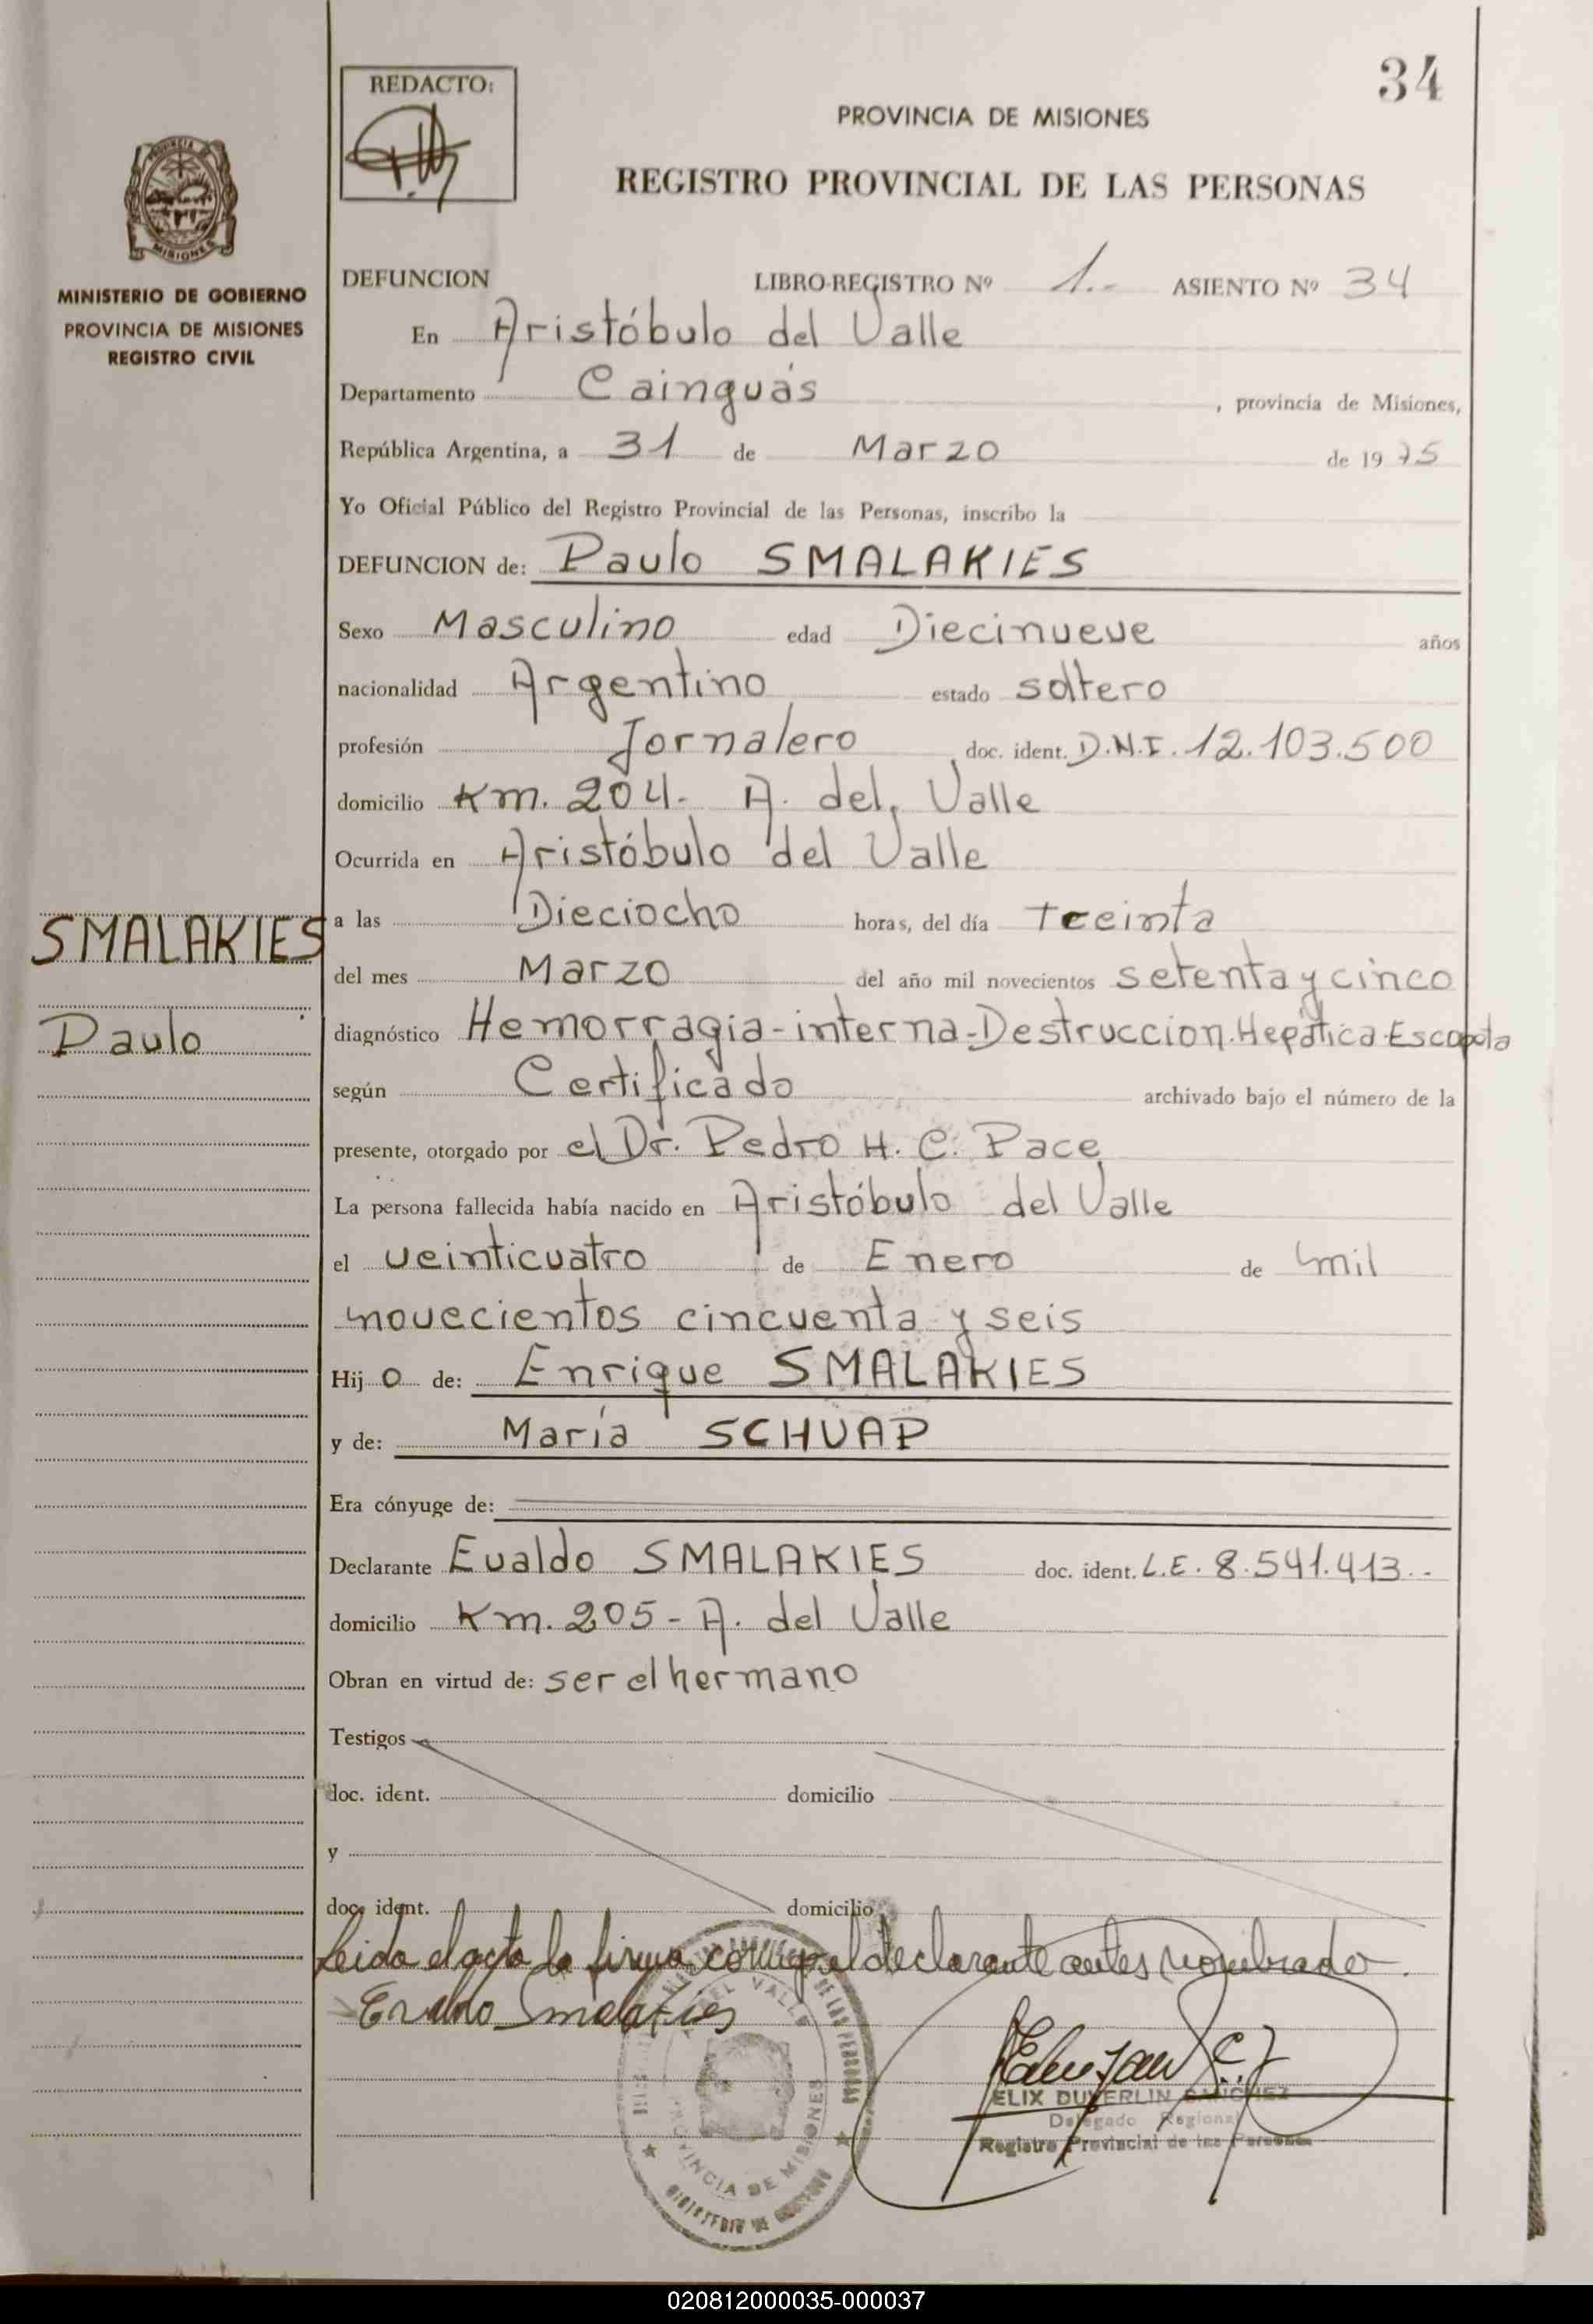 34
REDACTO:
PROVINCIA DE MISIONES
REGISTRO PROVINCIAL DE LAS PERSONAS
MISIONES
MINISTERIO DE GOBIERNO
PROVINCIA DE MISIONES
REGISTRO CIVIL
DEFUNCION LIBRO-REGISTRO Nº 1.- ASIENTO Nº 34
En Aristóbulo del Valle
Departamento Cainguás, provincia de Misiones,
República Argentina, a 31 de Marzo de 1975
Yo Oficial Público del Registro Provincial de las Personas, inscribo la
DEFUNCION de: Paulo SMALAKIES
Sexo Masculino edad Diecinueve años
nacionalidad Argentino estado soltero
profesión Jornalero doc. ident. D.N.I. 12.103.500
domicilio Km. 204. A. del Valle
Ocurrida en Aristóbulo del Valle
SMALAKIES
Paulo
a las Dieciocho horas, del día treinta
del mes Marzo del año mil novecientos setenta y cinco
diagnóstico Hemorragia-interna-Destruccion.Hepática-Escopeta
según Certificado archivado bajo el número de la
presente, otorgado por el Dr. Pedro H. C. Pace
La persona fallecida había nacido en Aristóbulo del Valle
el veinticuatro de Enero de mil
novecientos cincuenta y seis
Hijo de: Enrique SMALAKIES
y de: María SCHUAP
Era cónyuge de:
Declarante Evaldo SMALAKIES doc. ident. L.E. 8.541.413.-
domicilio Km. 205 - A. del Valle
Obran en virtud de: ser el hermano
Testigos
doc. ident. domicilio
y
doc. ident. domicilio
Leida el acta la firma conmigo el declarante antes nombrado.
Evaldo Smalakies
ELIX DUVERLIN SANCHEZ
Delegado Regional
Registro Provincial de las Personas
DEL VALLE
DE LAS PERSONAS
PROVINCIA DE MISIONES
MINISTERIO DE GOBIERNO
020812000035-000037